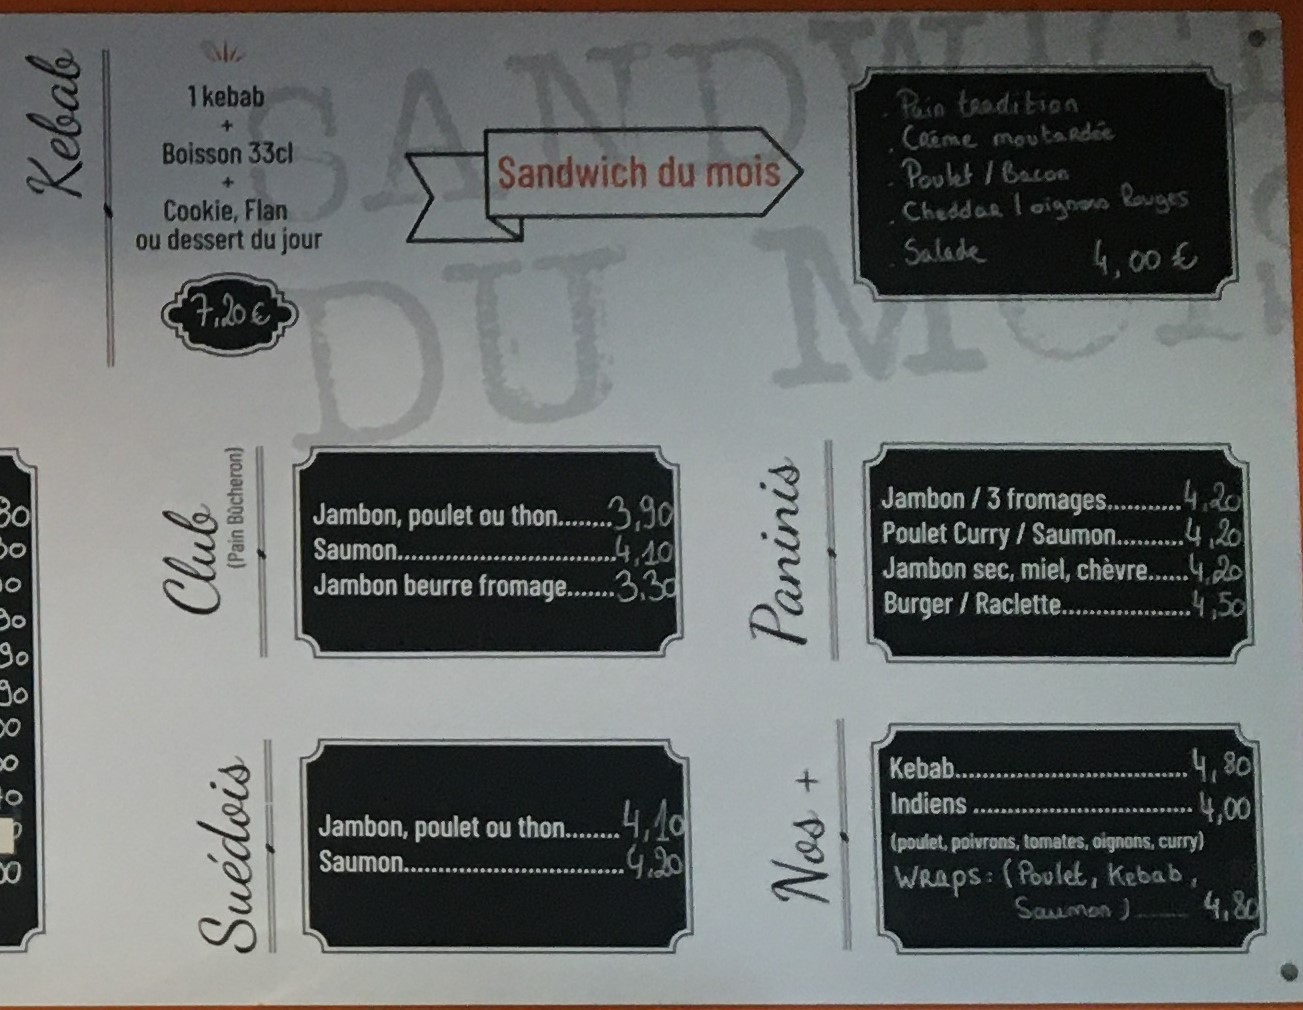 SANDWICH
DU MOIS
Kebab
1 kebab
+
Boisson 33cl
+
Cookie, Flan
ou dessert du jour
7,20 €
Sandwich du mois
. Pain tradition
. Crème moutardée
. Poulet / Bacon
. Cheddar / oignons Rouges
. Salade 4,00 €
Club
(Pain Bûcheron)
Jambon, poulet ou thon........3,90
Saumon.......................................4,10
Jambon beurre fromage.......3,30
Paninis
Jambon / 3 fromages............4,20
Poulet Curry / Saumon..........4,20
Jambon sec, miel, chèvre......4,20
Burger / Raclette....................4,50
Suédois
Jambon, poulet ou thon........4,10
Saumon.......................................4,20
Nos +
Kebab.......................................4,80
Indiens .....................................4,00
(poulet, poivrons, tomates, oignons, curry)
WRAPS : (Poulet, Kebab,
Saumon) ........ 4,80